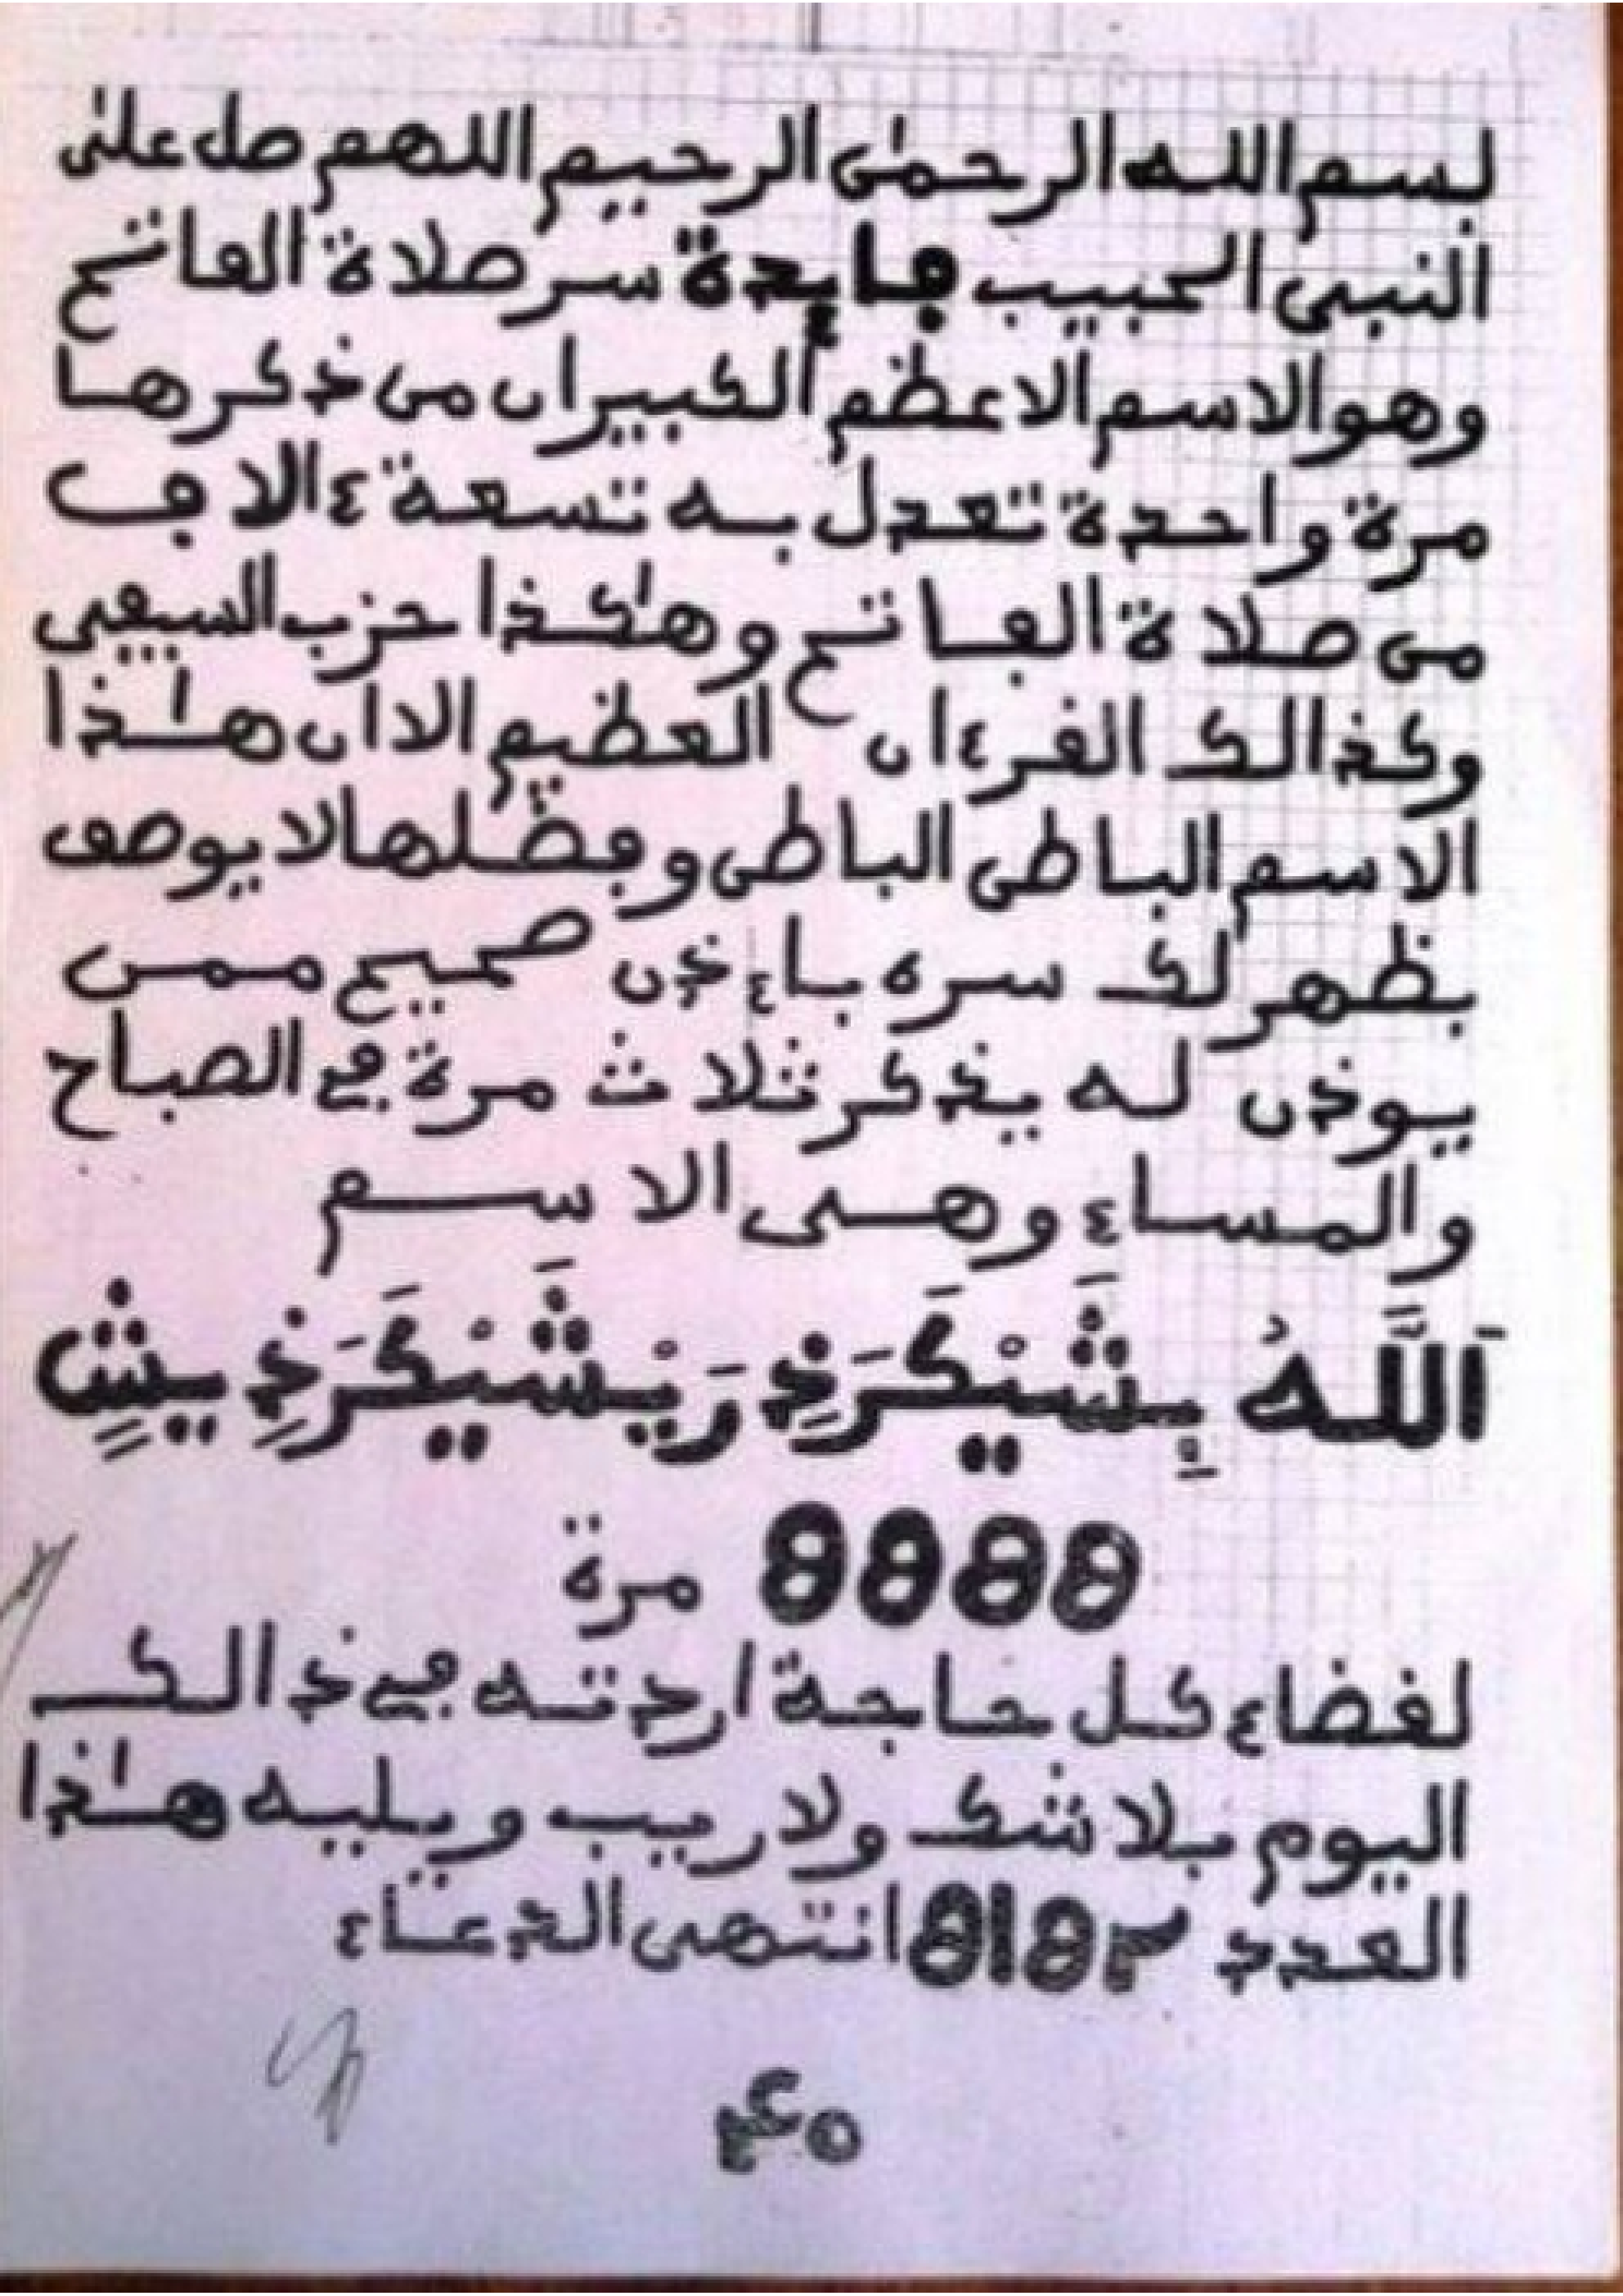 بسم الله الرحمٰن الرحيم اللهم صل علىٰ
النبى الحبيب ڢايدة سر صلاة الڢاتح
وهو الاسم الاعظم الكبير ان من ذكرها
مرة واحدة تعدل به تسعة ءالاڢ
من صلاة الڢاتح وهٰكذا حزب السيڢى
وكذالك الفرءان العظيم الا ان هٰذا
الاسم الباطن الباطن وڢضلها لا يوصف
يظهر لك سره بإذن صحيح ممن
يوذن له يذكر ثلاث مرة ڢى الصباح
والمساء وهى الاسم
اَللَّهُ بِشَيْكَرَذِ رَيْشَيْكَرَذِ يشٍ
8888 مرة
لفضاء كل حاجة اردته ڢى ذالك
اليوم بلا شك ولا ريب ويليه هٰذا
العدد 8182 انتهى الدعاء